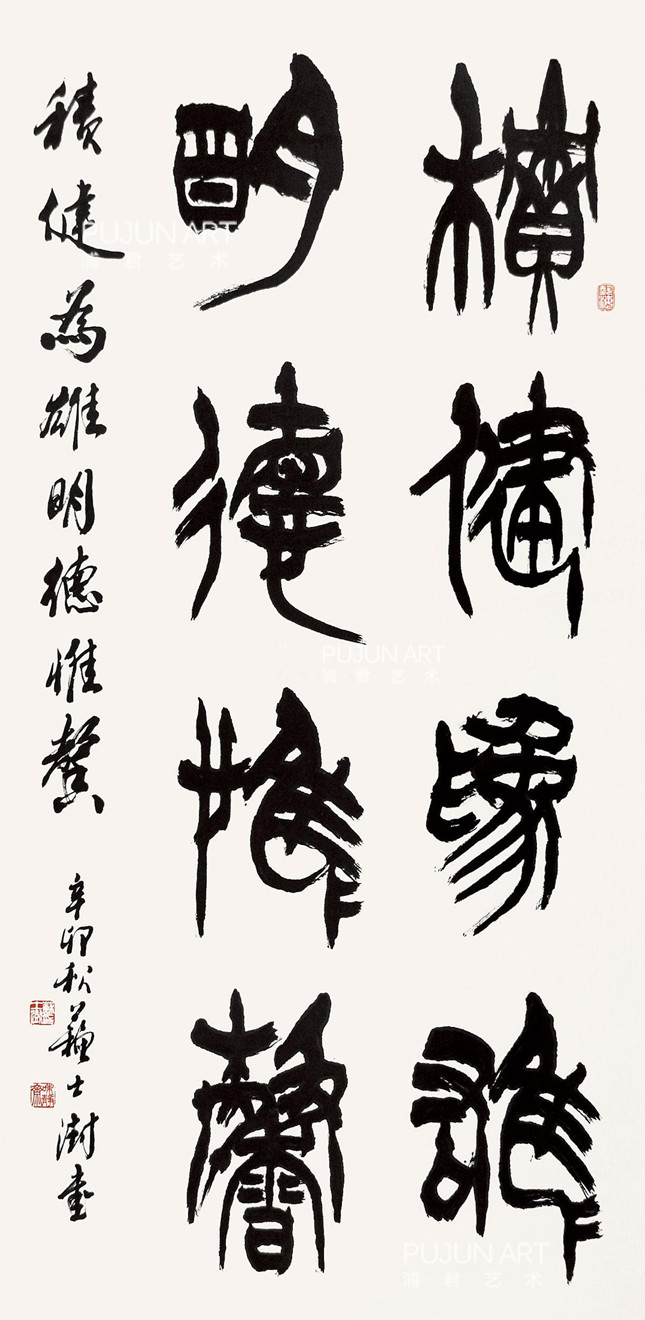 積健為雄
明德惟馨
積健為雄明德惟馨 辛卯秋蘇士澍書
PUJUN ART
浦君艺术
PUJUN ART
浦君艺术
PUJUN ART
浦君艺术